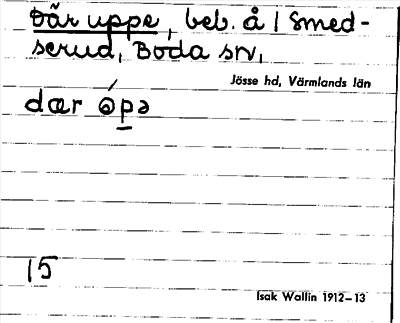 Där uppe, beb. å 1 Smed-
serud, Boda sn,
Jösse hd, Värmlands län
dær ǿpə
15
Isak Wallin 1912–13